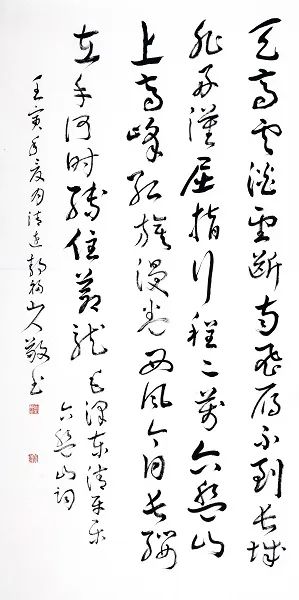 天高云淡望断南飛雁不到长城
非好漢屈指行程二萬六盤山
上高峰红旗漫卷西风今日长缨
在手何时缚住苍龙毛泽东清平乐
六盤山词
壬寅年夏月清远山人敬书